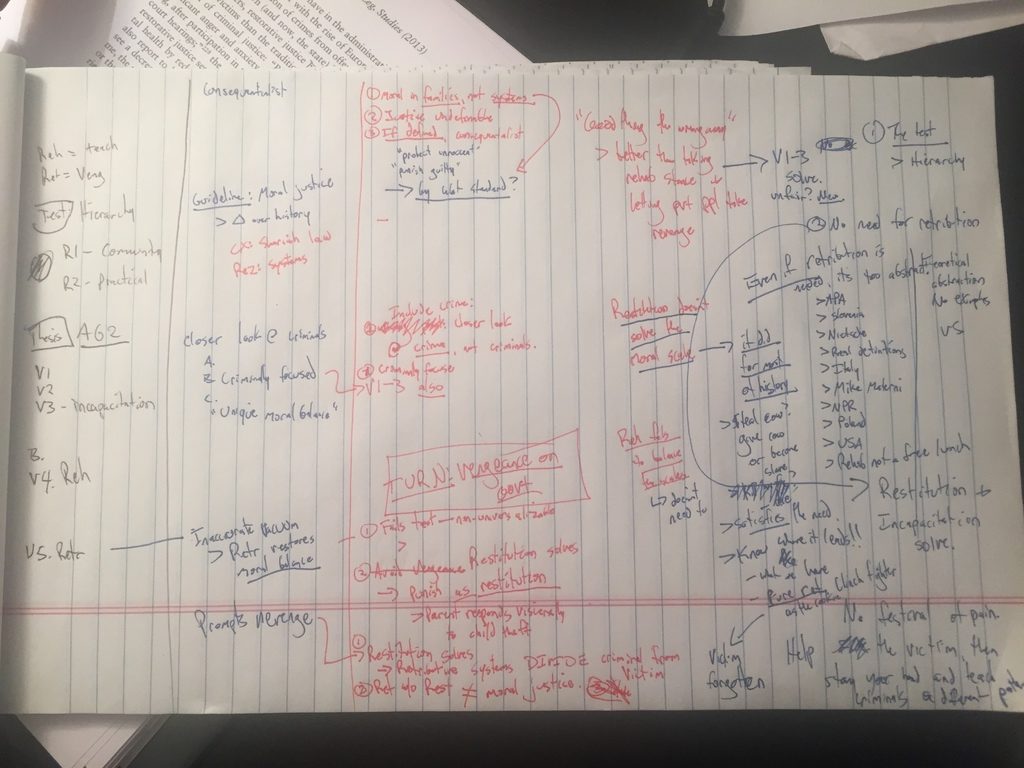 Leg. Studies (2013)
have in the administra
with the rise of Europ
tion of crimes from
court hearings;
after participation in
Reh = teach
Ret = Veng
Test Hierarchy
R1 - Community
R2 - Practical
Thesis AG2
V1
V2
V3 - Incapacitation
B.
V4. Reh
V5. Retr
Consequentialist
Guideline: Moral justice
> Δ over history
CX: Swedish law
Rez: systems
closer look @ criminals
A.
B. Criminally focused
C. "Unique moral balance"
Inaccurate vacuum
> Retr restores
moral balance
Prompts revenge
① Moral in families, not systems
② Justice undefinable
③ If defined, consequentialist
"protect innocent"
"punish guilty"
→ by what standard?
Include crime:
closer look
@ crime, not criminals.
② Criminally focuse
V1-3 also
TURN: Vengeance on
govt
① Fails test - non-universalizable
>
② Avoid vengeance Restitution solves
→ Punish as restitution
> Parent responds viscerally
to child theft
① Restitution solves
→ Retributive systems DIVIDE criminal from
victim
② Ret w/o Rest ≠ moral justice.
> better than taking
rehab stance
letting govt ppl take
revenge
→ V1-3
solve.
unfair?
Restitution doesn't
solve the
moral scale
→ it did
for most
of history
> Steal cow?
give cow
or become
slave
Reh fails
to balance
the scales
↳ doesn't
need to
> Satisfies the need
> Know where it lends!!
- what we have
- Pure retr
Victim
forgotten
① The test
> Hierarchy
② No need for retribution
Even if retribution is
needed, its too abstract.
Theoretical
abstraction
No examples
VS
> APA
> Slovenia
> Nietzsche
> Real definitions
> Italy
> Mike Materni
> NPR
> Poland
> USA
> Rehab not a free lunch
Restitution +
Incapacitation
solve.
No festival of pain.
Help the victim, then
stay your hand and teach
criminals a different path